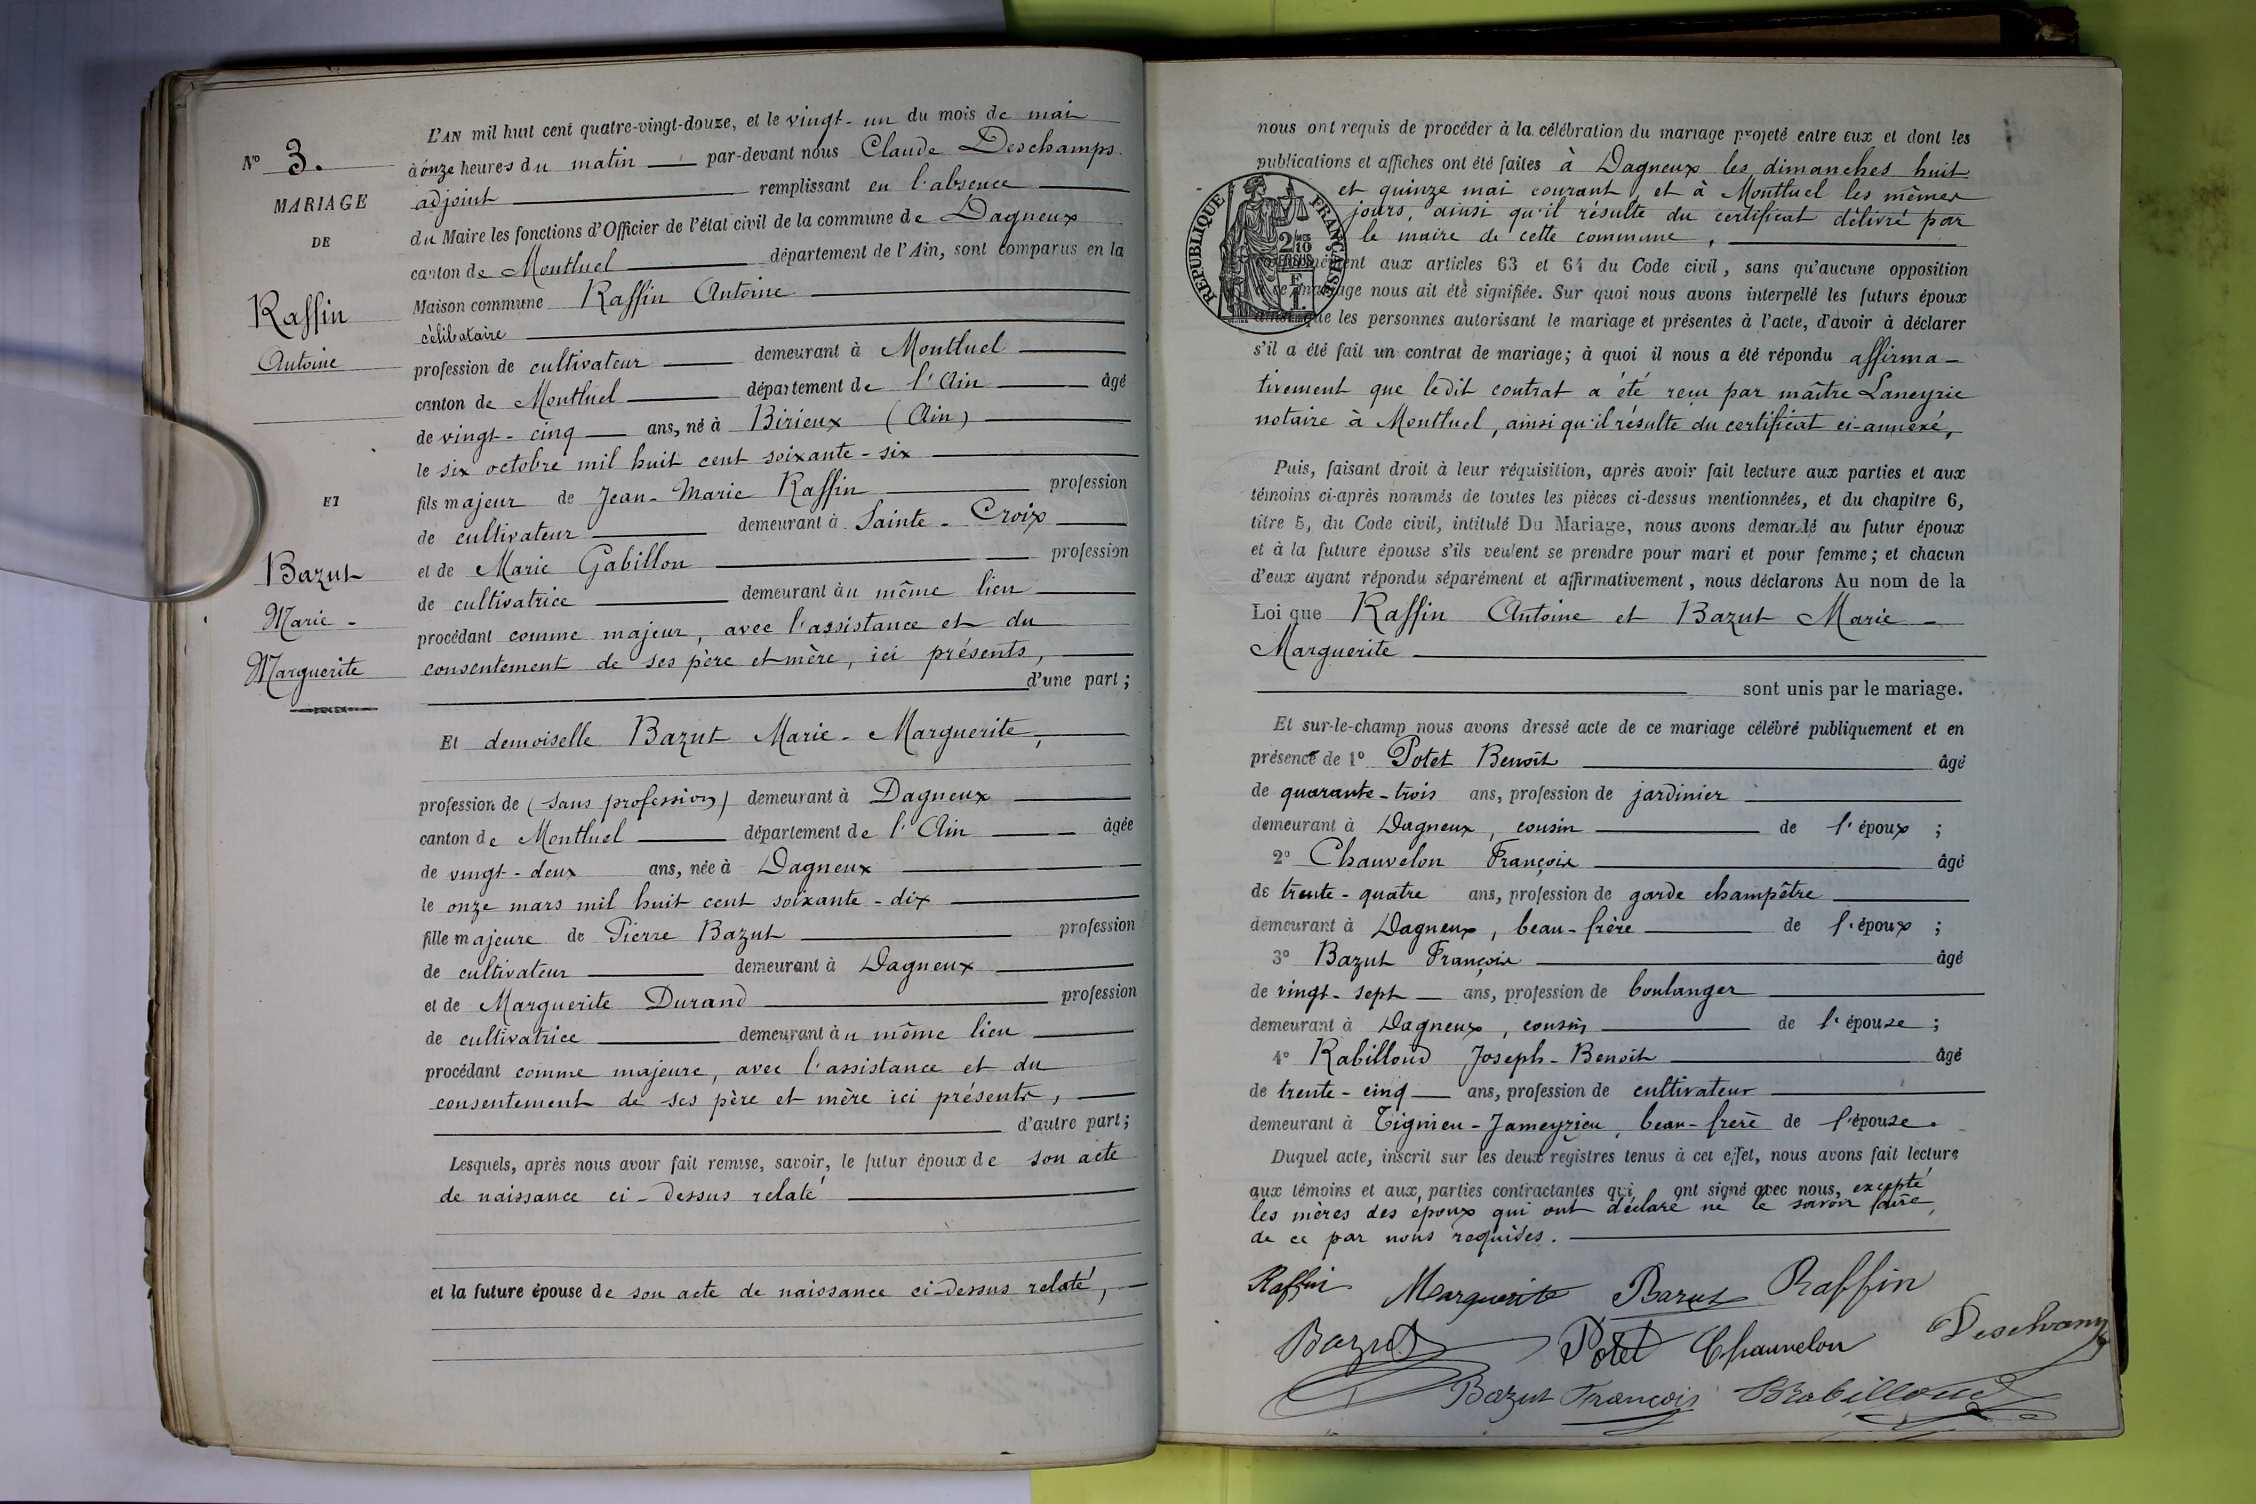 N° 3.
MARIAGE
DE
Raffin
Antoine
ET
Bazut
Marie -
Marguerite
L'AN mil huit cent quatre-vingt-douze, et le vingt-un du mois de mai
à onze heures du matin par-devant nous Claude Deschamps
adjoint remplissant en l'absence
du Maire les fonctions d'Officier de l'état civil de la commune de Dagneux
canton de Montluel département de l'Ain, sont comparus en la
Maison commune Raffin Antoine
célibataire
profession de cultivateur demeurant à Montluel
canton de Montluel département de l'Ain âgé
de vingt-cinq ans, né à Birieux (Ain)
le six octobre mil huit cent soixante-six
fils majeur de Jean-Marie Raffin profession
de cultivateur demeurant à Sainte-Croix
et de Marie Gabillon profession
de cultivatrice demeurant au même lieu
procédant comme majeur, avec l'assistance et du
consentement de ses père et mère, ici présents,
d'une part ;
Et demoiselle Bazut Marie-Marguerite,
profession de (sans profession) demeurant à Dagneux
canton de Montluel département de l'Ain âgée
de vingt-deux ans, née à Dagneux
le onze mars mil huit cent soixante-dix
fille majeure de Pierre Bazut profession
de cultivateur demeurant à Dagneux
et de Marguerite Durand profession
de cultivatrice demeurant au même lieu
procédant comme majeure, avec l'assistance et du
consentement de ses père et mère ici présents,
d'autre part ;
Lesquels, après nous avoir fait remise, savoir, le futur époux de son acte
de naissance ci-dessus relaté
et la future épouse de son acte de naissance ci-dessus relaté,
nous ont requis de procéder à la célébration du mariage projeté entre eux et dont les
publications et affiches ont été faites à Dagneux les dimanches huit
et quinze mai courant, et à Montluel les mêmes
jours, ainsi qu'il résulte du certificat délivré par
le maire de cette commune,
RÉPUBLIQUE FRANÇAISE
2/10
conformément aux articles 63 et 64 du Code civil, sans qu'aucune opposition
à ce mariage nous ait été signifiée. Sur quoi nous avons interpellé les futurs époux
ainsi que les personnes autorisant le mariage et présentes à l'acte, d'avoir à déclarer
s'il a été fait un contrat de mariage; à quoi il nous a été répondu affirma-
tivement que ledit contrat a été reçu par maître Laneyrie
notaire à Montluel, ainsi qu'il résulte du certificat ci-annexé,
Puis, faisant droit à leur réquisition, après avoir fait lecture aux parties et aux
témoins ci-après nommés de toutes les pièces ci-dessus mentionnées, et du chapitre 6,
titre 5, du Code civil, intitulé Du Mariage, nous avons demandé au futur époux
et à la future épouse s'ils veulent se prendre pour mari et pour femme ; et chacun
d'eux ayant répondu séparément et affirmativement, nous déclarons Au nom de la
Loi que Raffin Antoine et Bazut Marie -
Marguerite
sont unis par le mariage.
Et sur-le-champ nous avons dressé acte de ce mariage célébré publiquement et en
présence de 1° Potet Benoît âgé
de quarante-trois ans, profession de jardinier
demeurant à Dagneux, cousin de l'époux ;
2° Chauvelon François âgé
de trente-quatre ans, profession de garde champêtre
demeurant à Dagneux, beau-frère de l'époux ;
3° Bazut François âgé
de vingt-sept ans, profession de boulanger
demeurant à Dagneux, cousin de l'épouse ;
4° Rabilloud Joseph-Benoît âgé
de trente-cinq ans, profession de cultivateur
demeurant à Tignieu-Jameyzieu, beau-frère de l'épouse.
Duquel acte, inscrit sur les deux registres tenus à cet effet, nous avons fait lecture
aux témoins et aux parties contractantes qui ont signé avec nous, excepté
les mères des époux qui ont déclaré ne le savoir faire,
de ce par nous requises.
Raffin Marguerite Bazut Raffin
Bazut Potet Chauvelon Deschamps
Bazut François Rabilloud